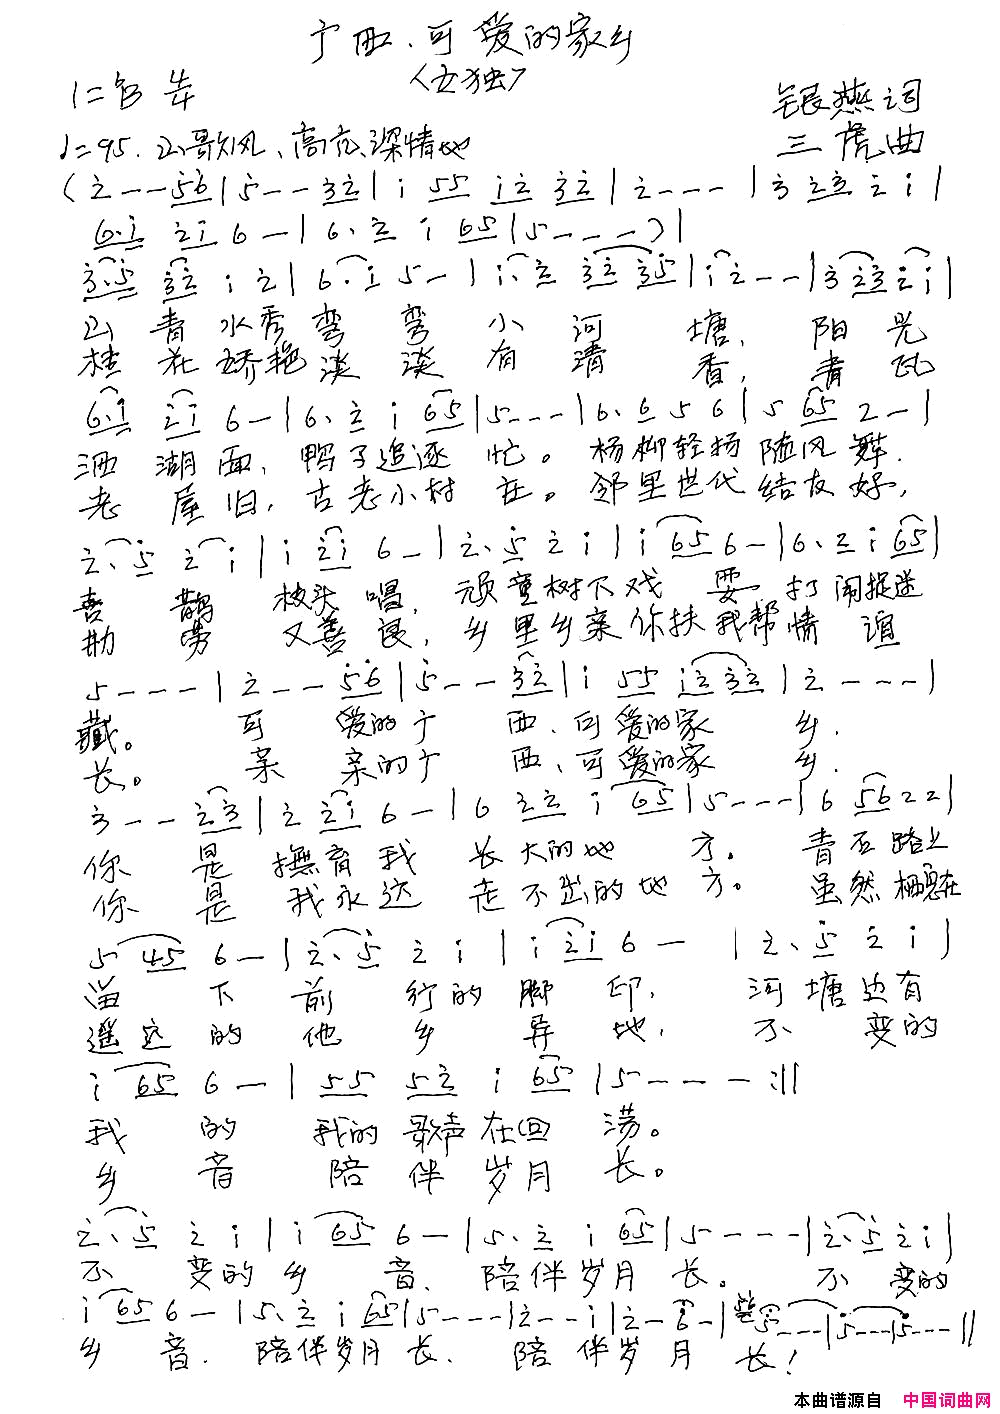 广西、可爱的家乡
(女独)
1=♭B 4/4
银燕词
♩=95. 山歌风、高亢、深情地
三虎曲
(2̇---5̇6̇|5̇---3̇2̇|1̇ 55 1̇2̇ 3̇2̇|2̇---|3̇ 2̇3̇ 2̇ 1̇|
6.1̇ 2̇1̇ 6-|6、2̇ 1̇ 65|5---)|
3̇.5̇ 3̇2̇ 1̇ 2̇|6.1̇ 5-|1̇.2̇ 3̇2̇ 3̇5̇|1̇2̇--|3̇ 2̇3̇ 2̇1̇|
山青水秀弯弯小河塘，阳光
桂花娇艳淡淡有清香，青瓦
6.1̇ 2̇1̇ 6-|6、2̇ 1̇ 65|5---|6、6 5 6|5 65 2-|
洒湖面，鸭子追逐忙。杨柳轻扬随风舞．
老屋旧，古老小村在。邻里世代结友好，
2̇、5̇ 2̇1̇|1̇ 2̇1̇ 6-|2̇、5̇ 2̇ 1̇|1̇ 65 6-|6、2̇ 1̇ 65|
喜鹊枝头唱，顽童树下戏耍打闹捉迷
勤劳又善良，乡里乡亲你扶我帮情谊
5---|2̇--5̇6̇|5̇--3̇2̇|1̇ 55 1̇2̇3̇2̇|2̇---|
藏。可爱的广西、可爱的家乡．
长。亲亲的广西、可爱的家乡．
3̇--2̇3̇|2̇ 2̇1̇ 6-|6 2̇2̇ 1̇ 65|5---|6 5622|
你是撫育我长大的地方。青石路上
你是我永远走不出的地方。虽然栖息在
5 45 6-|2̇、5̇ 2̇ 1̇|1̇ 2̇1̇ 6-|2̇、5̇ 2̇ 1̇|
留下前行的脚印，河塘边有
遥远的他乡异地，不变的
1̇ 65 6-|55 52̇ 1̇ 65|5---:||
我的我的歌声在回荡。
乡音陪伴岁月长。
2̇、5̇ 2̇ 1̇|1̇ 65 6-|5、2̇ 1̇ 65|5---|2̇、5̇ 2̇1̇|
不变的乡音．陪伴岁月长。不变的
1̇ 65 6-|5、2̇ 1̇ 65|5---|2̇--1̇|2̇-6̇-|5̇---|5̇---|5̇---||
乡音．陪伴岁月长．陪伴岁月长！
本曲谱源自 中国词曲网